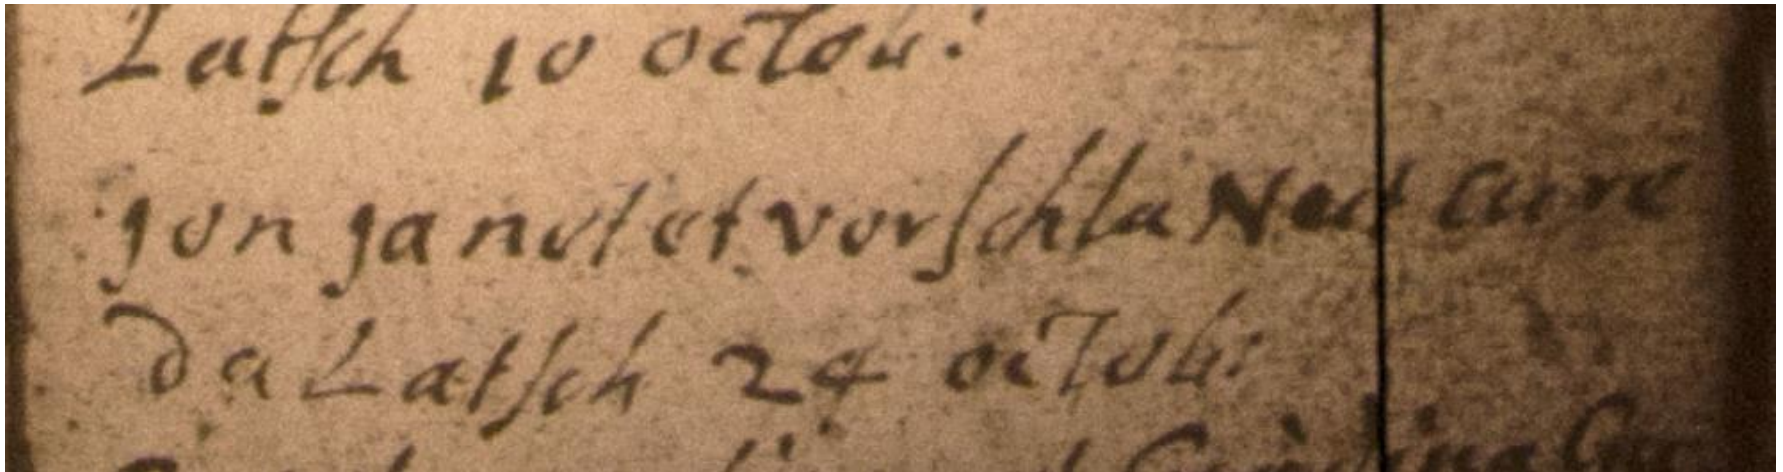 Latsch 10 octob:
Jon Janet et vorschla Nut Cure
da Latsch 24 octob: